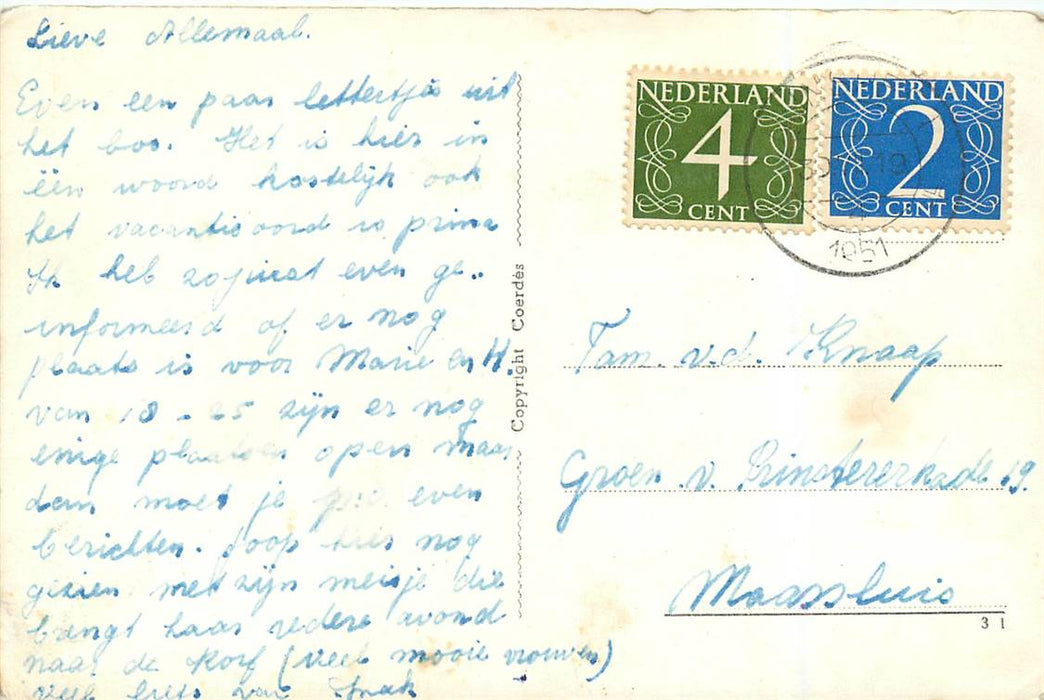 Lieve Allemaal.
Even een paar lettertjes uit
het bos. Het is hier in
één woord kostelijk ook
het vacantieoord is prima
Ik heb zojuist even ge..
informeerd of er nog
plaats is voor Marie en H.
van 18 - 25 zijn er nog
enige plaatsen open maar
dan moet je p.o. even
berichten. Joop hier nog
gezien met zijn meisje die
brengt haar iedere avond
naar de Korf (veel mooie vrouwen)
veel liefs van
Copyright Coerdès
NEDERLAND
4
CENT
NEDERLAND
2
CENT
1951
Fam. v.d. Knaap
Groen. v. Prinstererkade 19.
Maassluis
31